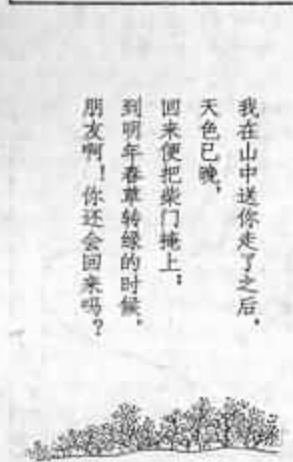 我在山中送你走了之后，
天色已晚，
回来便把柴门掩上；
到明年春草转绿的时候，
朋友啊！你还会回来吗？